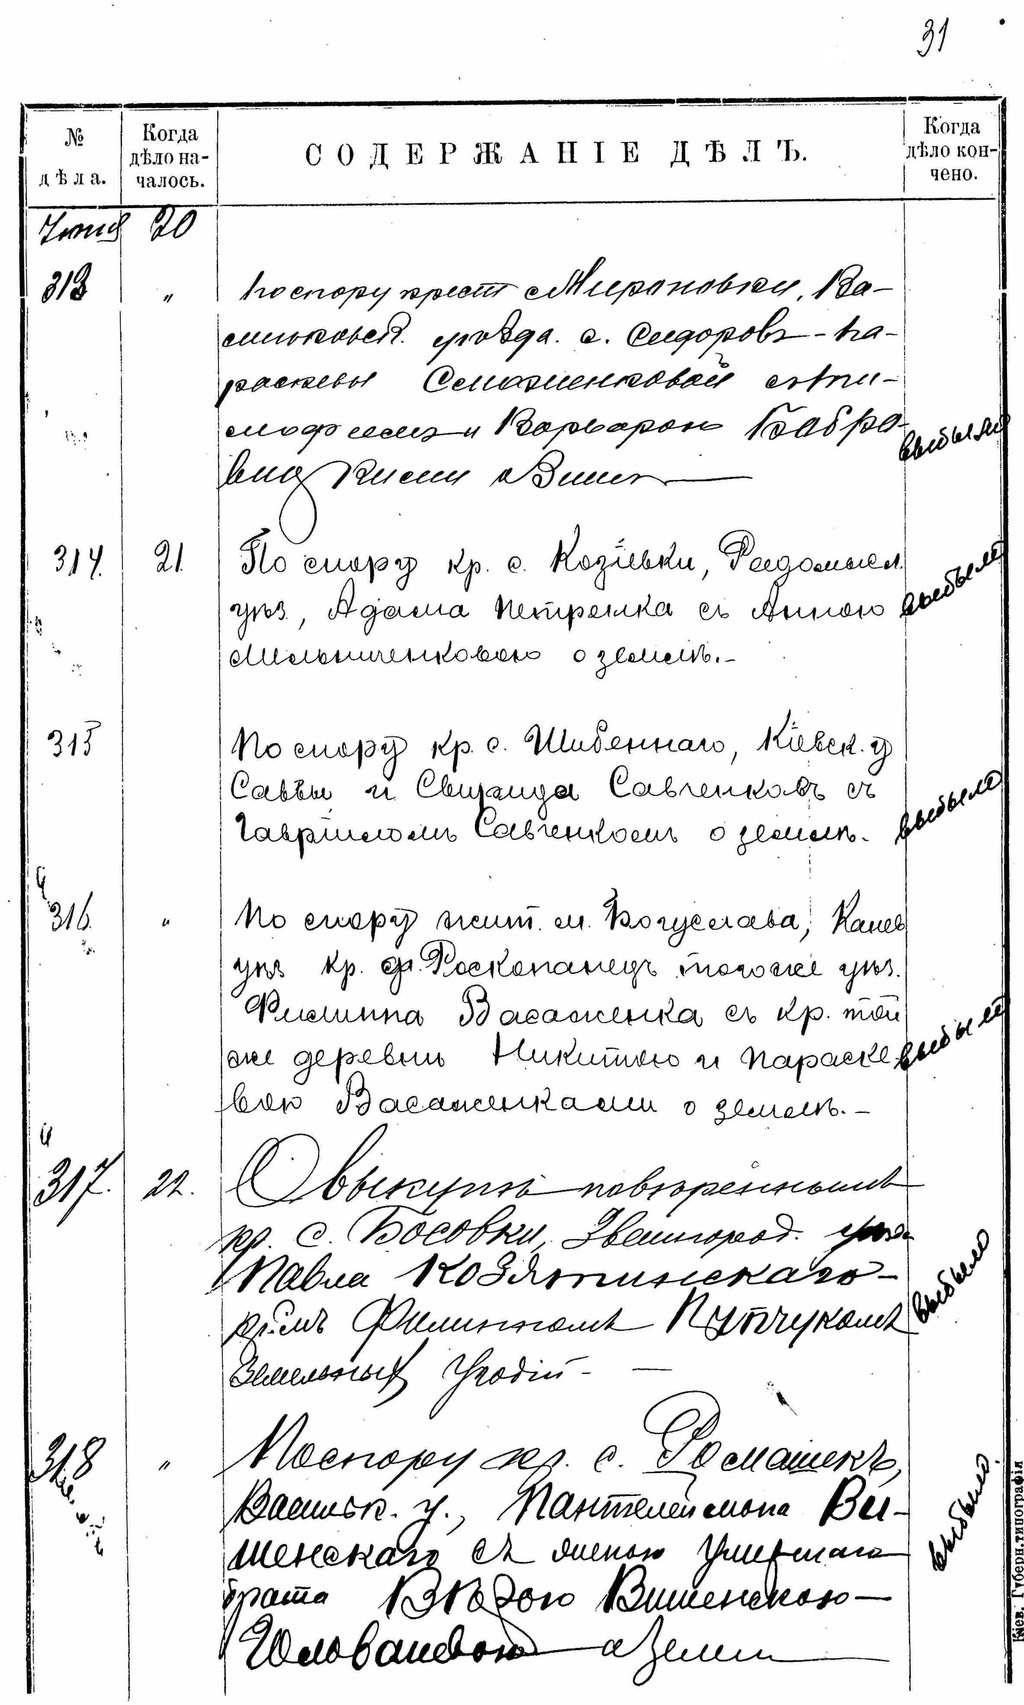 31
№ дѣла.
Когда дѣло началось.
СОДЕРЖАНІЕ ДѢЛЪ.
Когда дѣло кончено.
Іюня 20
313 " По спору крест с Мироновки, Ва-
сильковск. уѣзда. с. Сидоровъ - Па-
раскевы Семененковой съ Ти-
мофеемъ и Варварою Бобра-
выбыло
314. 21. По спору кр. с. Козіевки, Радомысл.
уѣз., Адама Петренка съ Анною
выбыло
Мельниченковою о землѣ.-
315 По спору кр. с. Шибеннаго, Кіевск. у
Саввы и Свирида Савченковъ съ
Гавріиломъ Савченкомъ о землѣ.
выбыло
316 " По спору жит. м. Богуслава, Канев
уѣз кр. д. Роскопанецъ того же уѣз.
Филиппа Васаженка съ кр. той
же деревни Никитою и Параске-
выбыло
вою Васаженками о землѣ.-
317. 22. О выкупѣ повѣреннымъ
кр. с. Босовки, Звенигород. уѣз.
Павла Козятинскаго-
Филиппомъ Пупчукомъ
выбыло
Земельных Угодій. —
318 " По спору кр. с. Ромашекъ,
Васильк. у., Пантелеймона Ви-
шенскаго съ женою умершаго
выбыло.
брата Вѣрою Вишенскою-
Головацевою о Земли
Кіев. Губерн. типографія